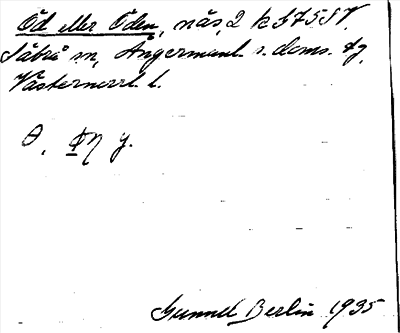 Öd eller Öden, näs, 2 k S75SV.
Säbrå sn, Ångermanl. s. doms. tg,
Västernorrl. l.
Gunnel Berlin 1935